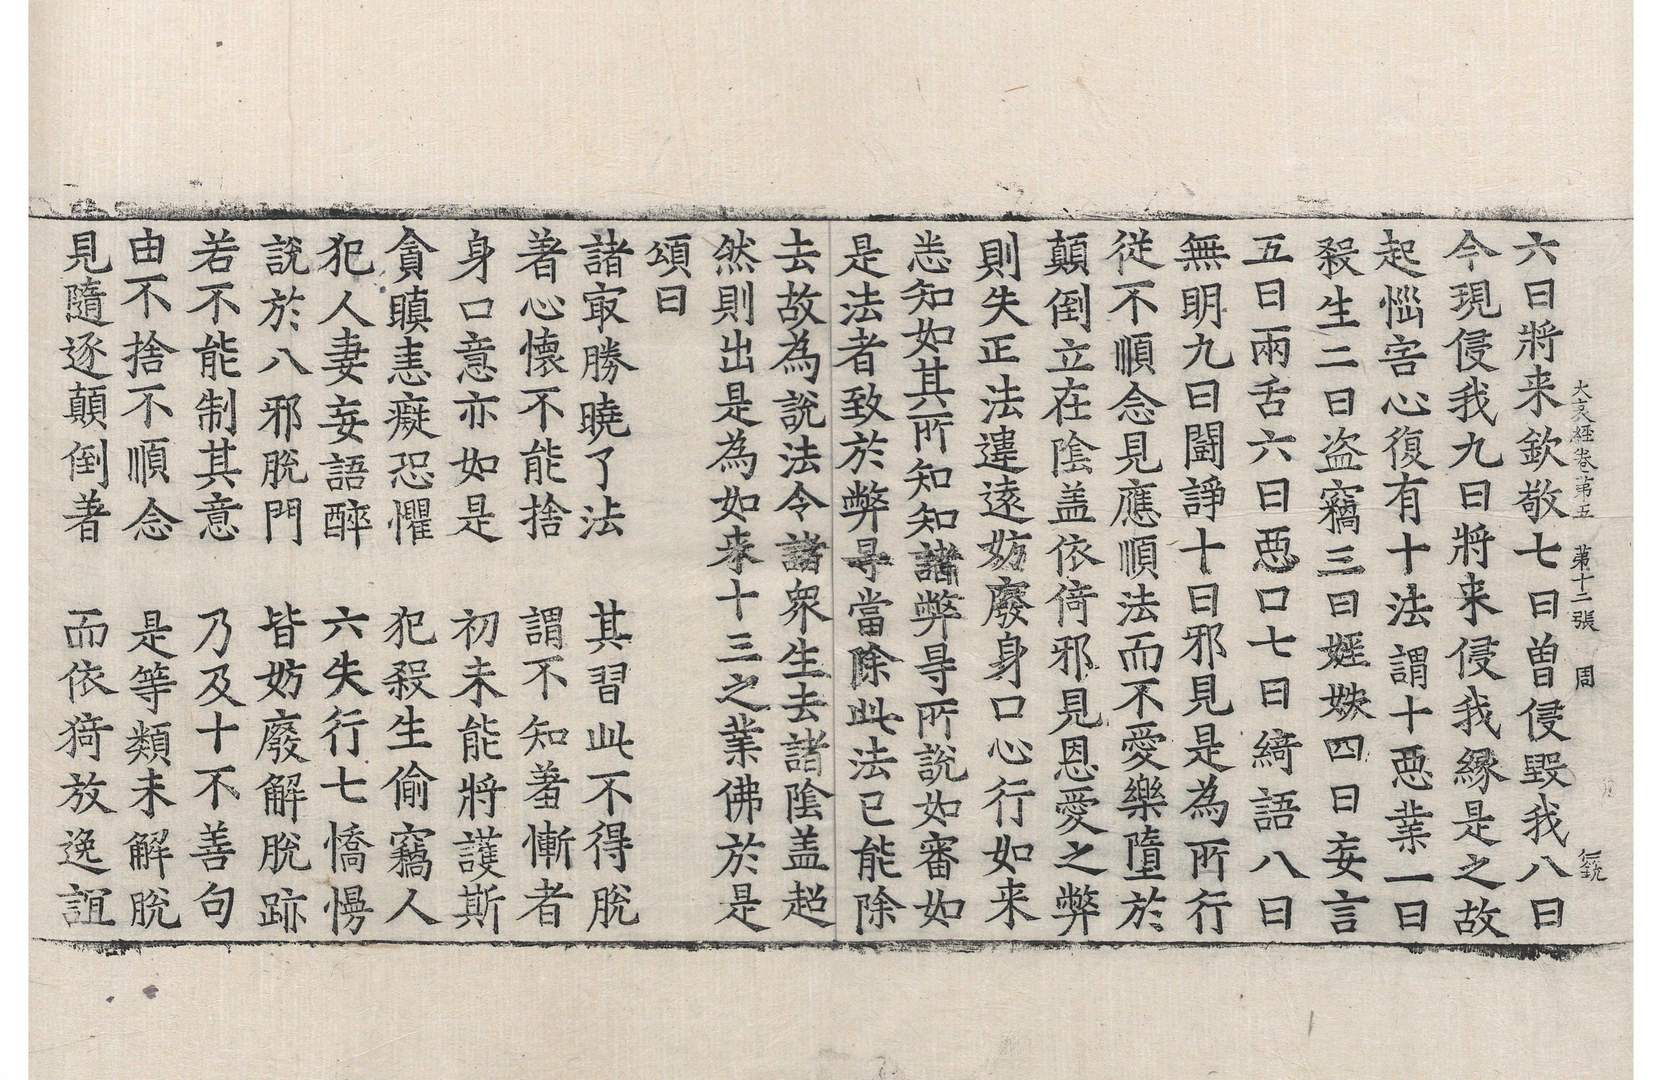 大哀経卷第五　第十二張　周
六曰將来欽敬七曰曽侵毀我八曰
今現侵我九曰將来侵我緣是之故
起惱害心復有十法謂十惡業一曰
殺生二曰盗竊三曰婬妷四曰妄言
五曰兩舌六曰惡口七曰綺語八曰
無明九曰鬪諍十曰邪見是為所行
從不順念見應順法而不愛樂墮於
顛倒立在陰盖依倚邪見恩愛之弊
則失正法違遠妨廢身口心行如来
悉知如其所知知諸弊㝵所說如審如
是法者致於弊㝵當除此法已能除
去故為說法令諸衆生去諸陰盖超
然則出是為如来十三之業佛於是
頌曰
諸㝡勝曉了法　其習此不得脫
著心懷不能捨　謂不知羞慚者
身口意亦如是　初未能將護斯
貪瞋恚癡恐懼　犯殺生偷竊人
犯人妻妄語醉　六失行七憍慢
說於八邪脫門　皆妨廢解脫跡
若不能制其意　乃及十不善句
由不捨不順念　是等類未解脫
見隨逐顛倒著　而依猗放逸誼